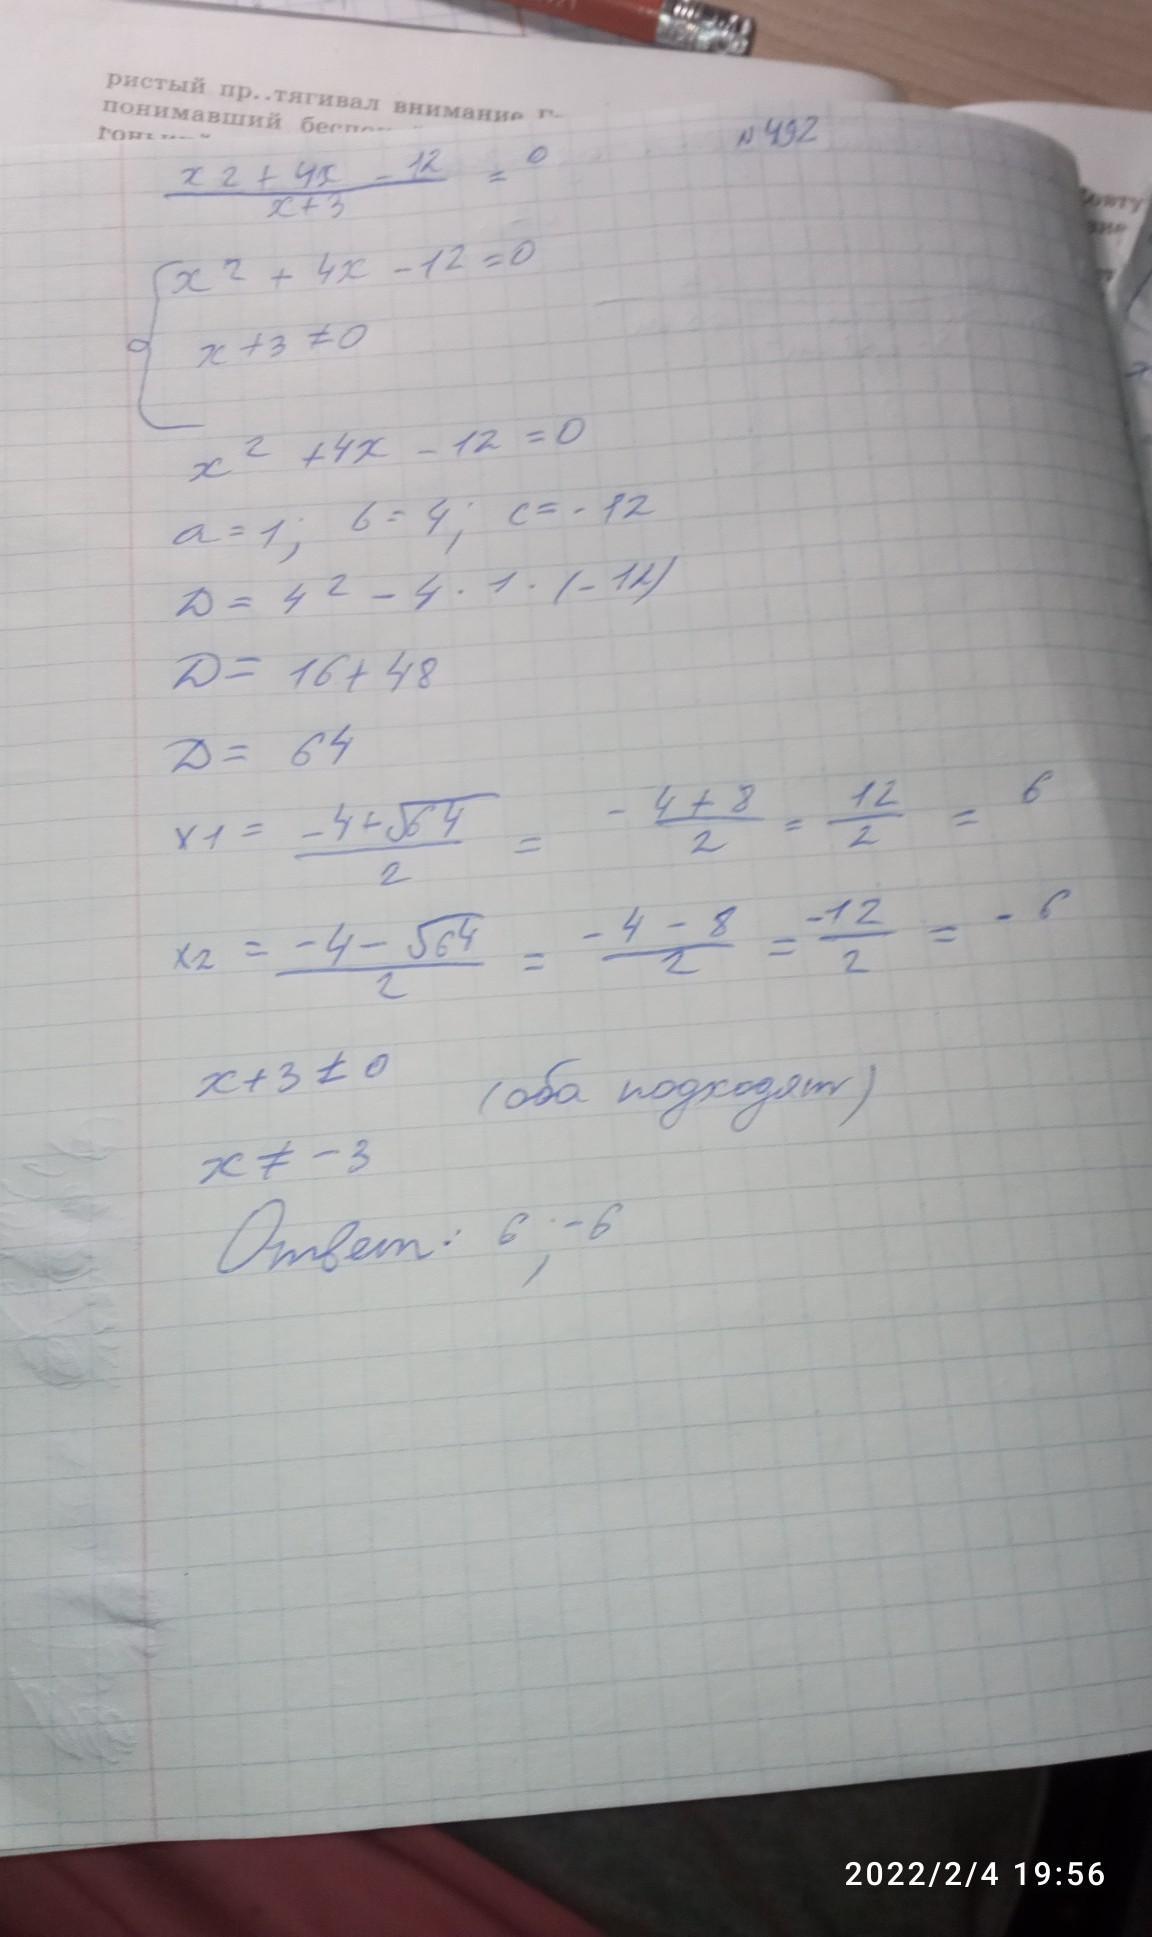 ристый пр..тягивал внимание
понимавший
№492
x2 + 4x - 12 = 0
x+3
x² + 4x - 12 = 0
x + 3 ≠ 0
x² + 4x - 12 = 0
a = 1; b = 4; c = -12
D = 4² - 4 · 1 · (-12)
D = 16 + 48
D = 64
x1 = -4+√64 / 2 = -4+8 / 2 = 12 / 2 = 6
x2 = -4-√64 / 2 = -4-8 / 2 = -12 / 2 = -6
x + 3 ≠ 0 (оба подходят)
x ≠ -3
Ответ: 6; -6
2022/2/4 19:56